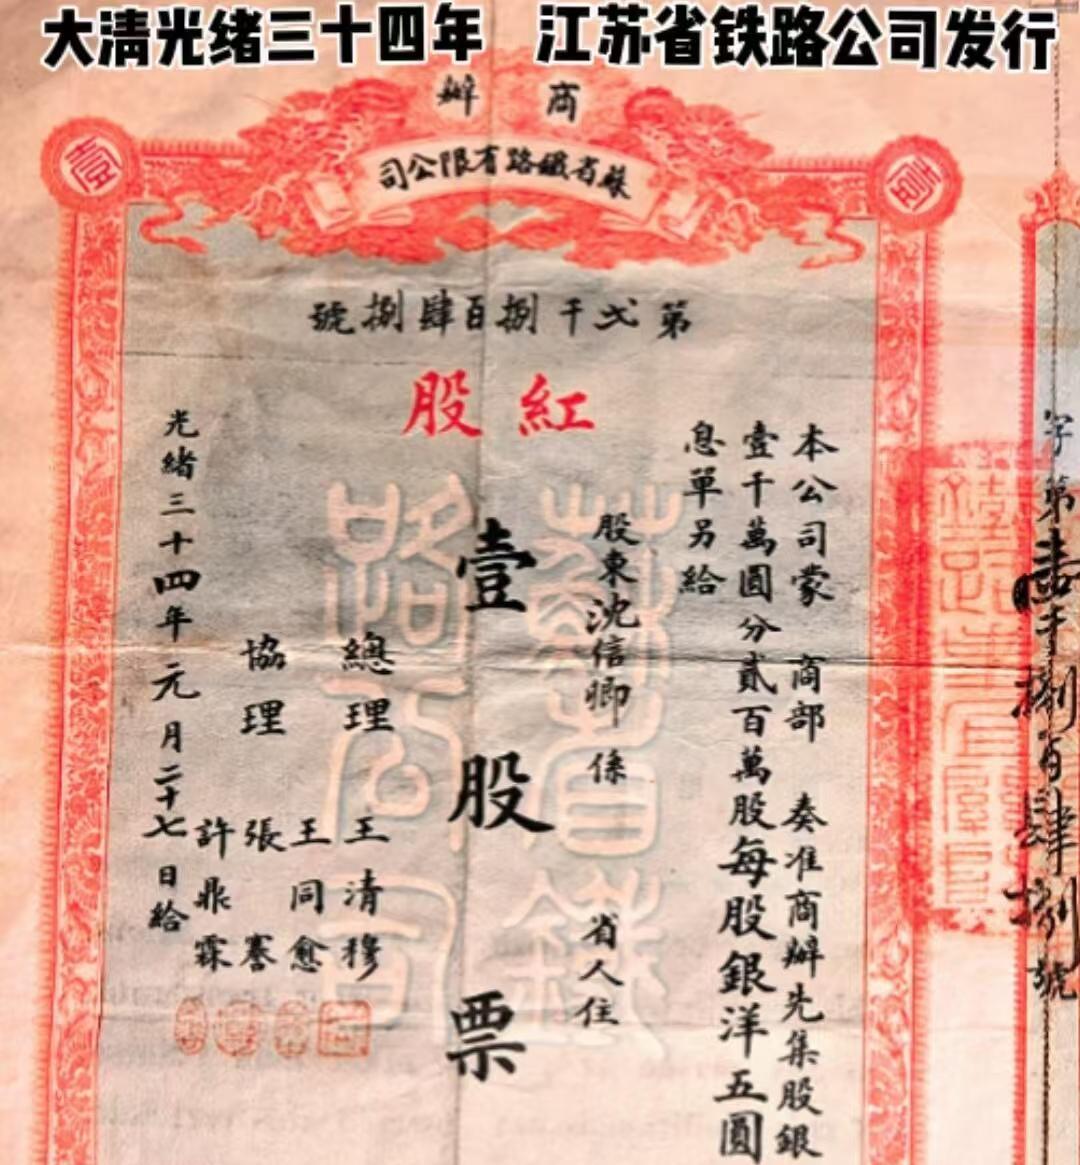 大清光绪三十四年 江苏省铁路公司发行
商辦
蘇省鐵路有限公司
第弍千捌百肆捌號
紅股
本公司蒙 商部 奏准商辦先集股銀
壹千萬圓分貳百萬股每股銀洋五圓
息單另給
股東沈信卿係 省人住
壹股票
總理 王清穆
王同愈
協理 張謇
許鼎霖
光緒三十四年元月二十七日給
蘇省鐵路公司
字第 千捌百肆捌號